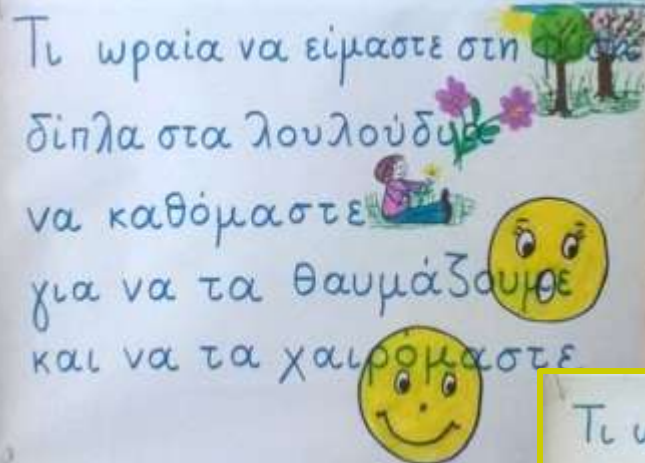 Τι ωραία να είμαστε στη φύση
δίπλα στα λουλούδια
να καθόμαστε
για να τα θαυμάζουμε
και να τα χαιρόμαστε
Τι